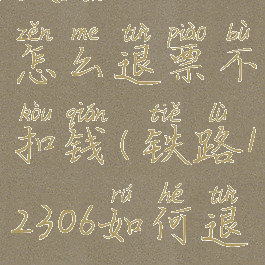 zěn me tuì piào bù
怎么退票不
kòu qián tiě lù
扣钱(铁路1
rú hé tuì
2306如何退